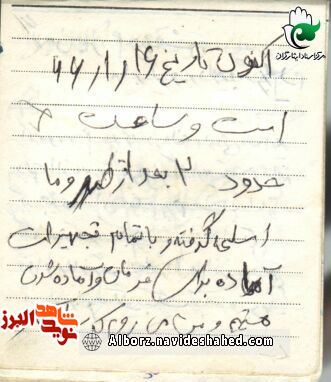 مرکز اسناد ایثارگران
اکنون تاریخ ۱۶/۱/۶۶
است و ساعت
حدود ۲ بعد از ظهر و ما
اسلحه گرفته و با تمام تجهیزات
آماده برای فرمان و آماده شدن
هستیم و من می روم که
نوید شاهد البرز
Alborz.navideshahed.com